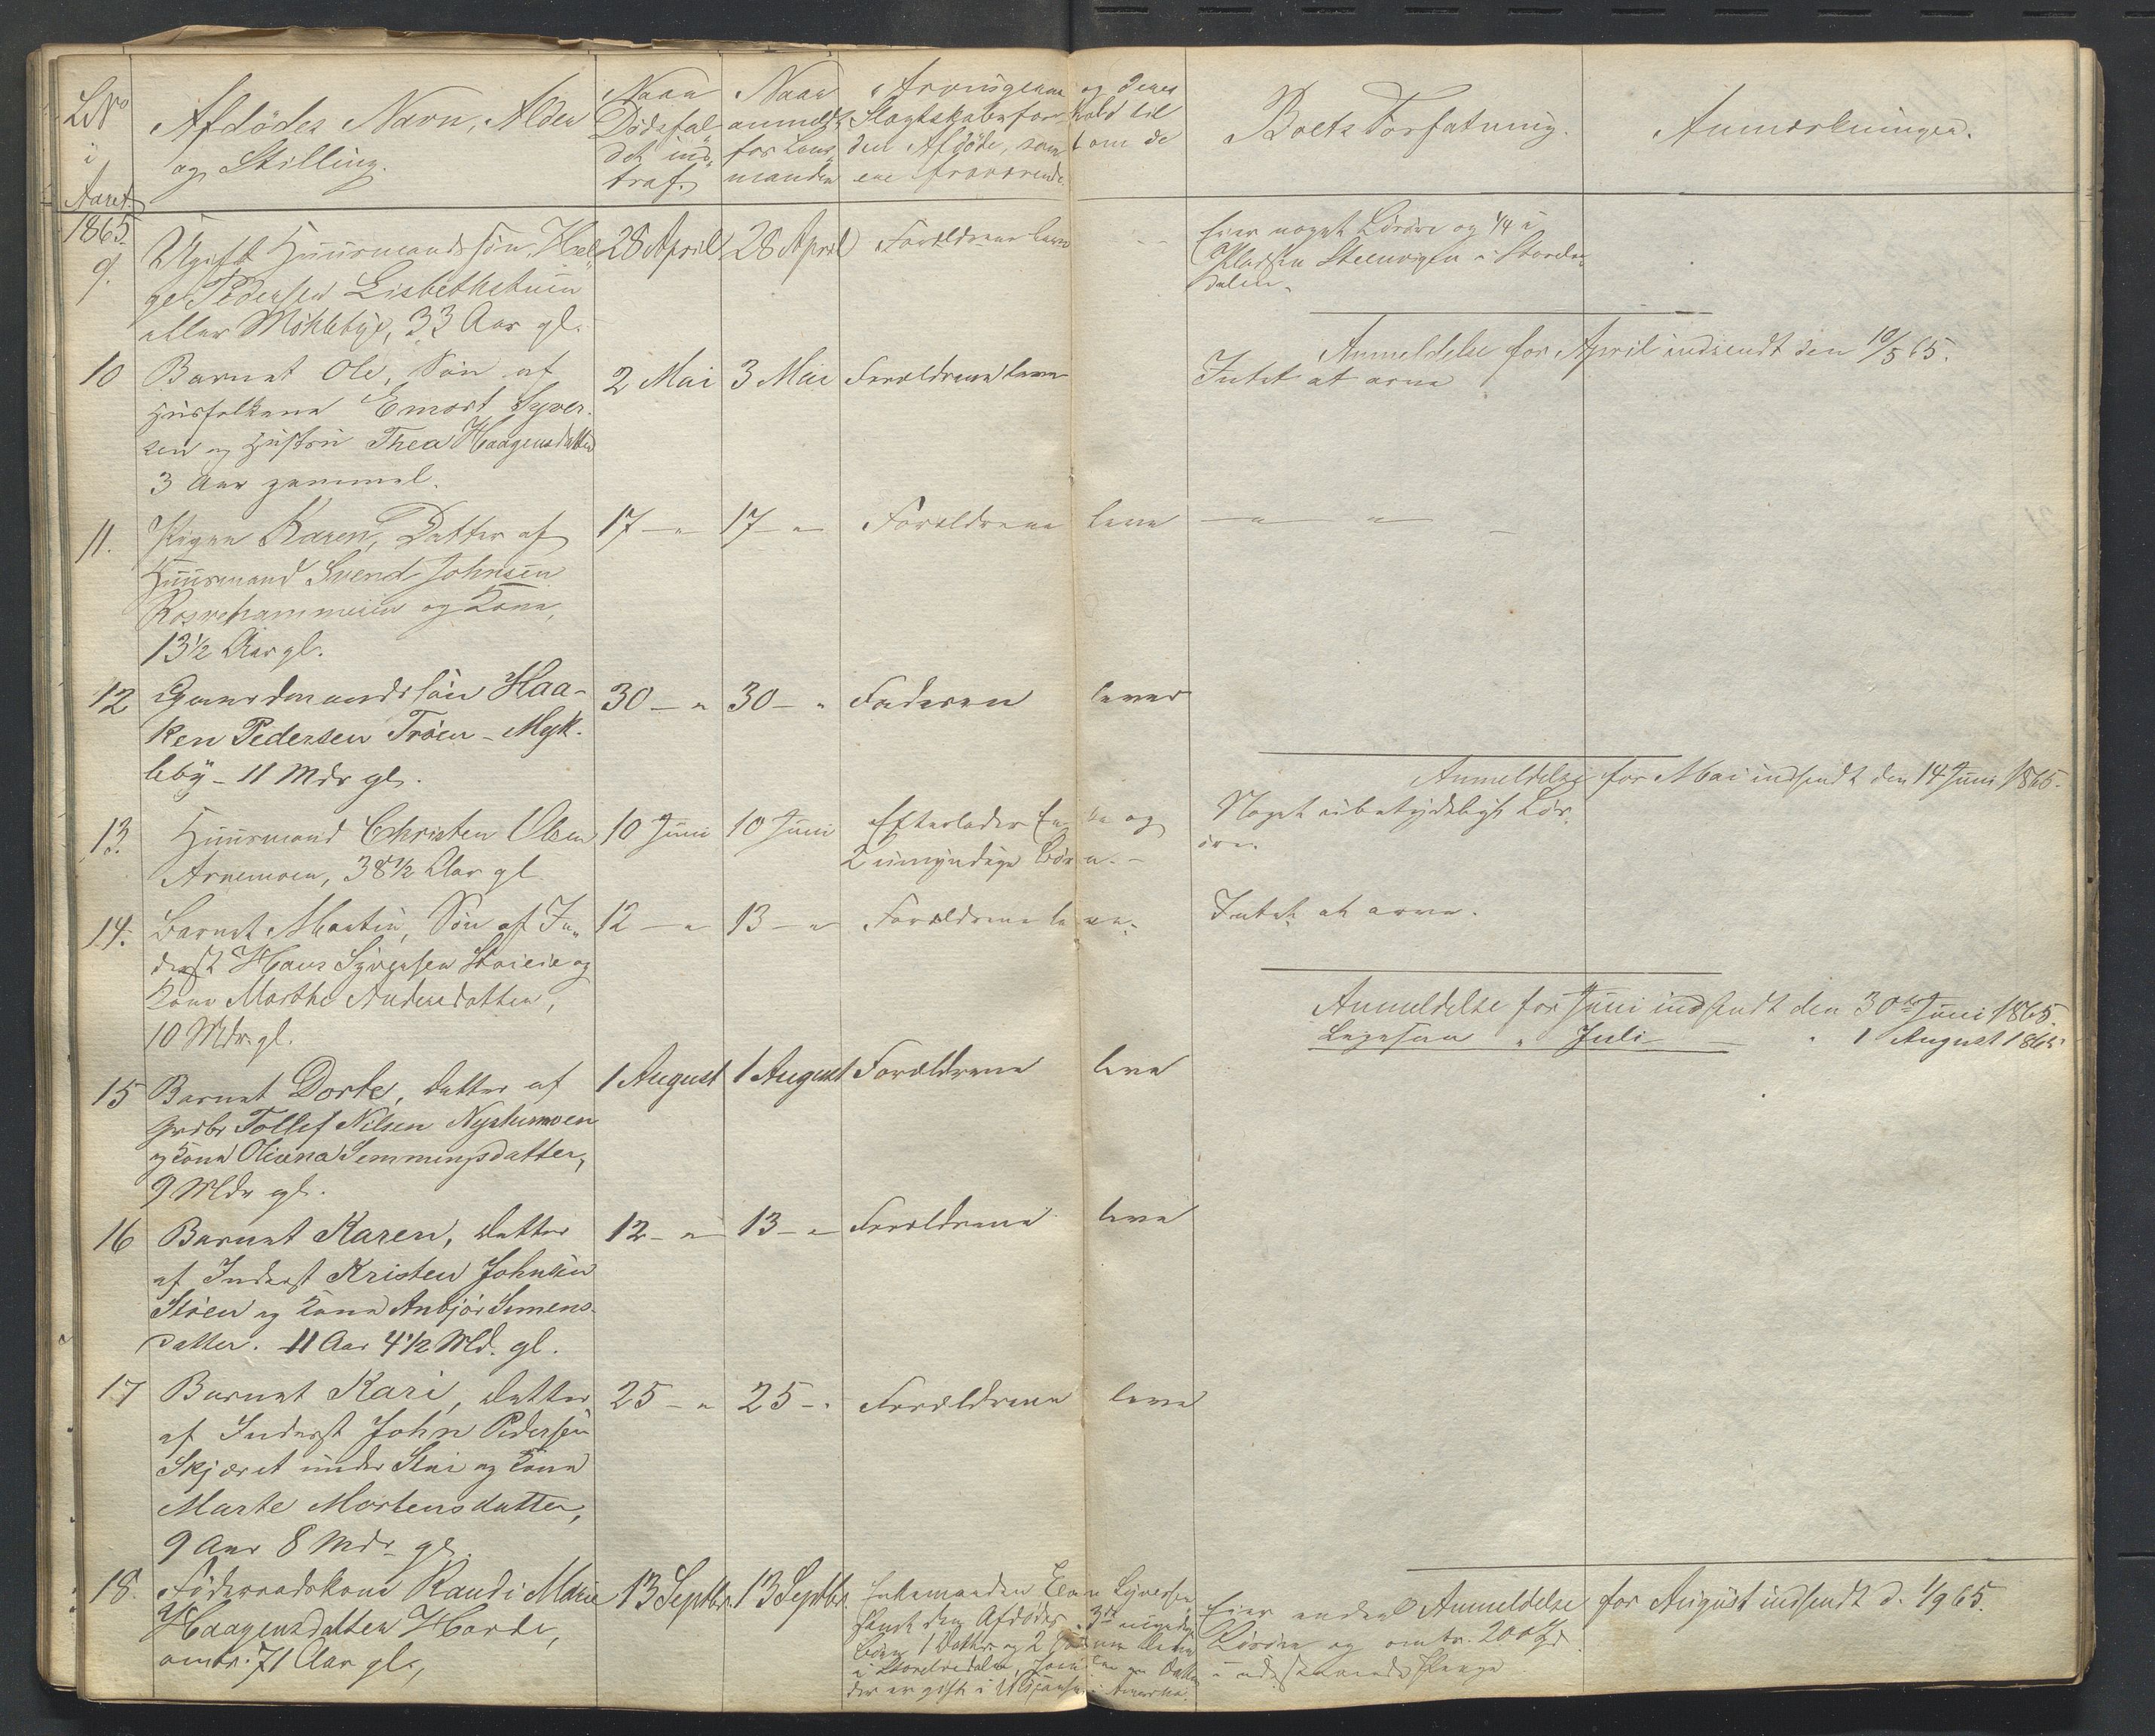 LNo
i
Aaret.
Afdödes Navn, Alder
og Stilling.
Naar
Dödsfal-
det ind-
traf.
Naar
anmeldt
for Lens-
manden
Arvingerne og deres
Slagtskabsforhold til
den Afdöde, samt om de
ere fraværende.
Boets Forfatning.
Anmærkninger.
1865.
9.
Ugift Huusmandssön Hel-
ge Pedersen Lisbethstuen
eller Möklebye, 33 Aar gl.
28 April
28 April
Forældrene leve
Eier noget Lösöre og 1/4 i
Pladsen Steenvigen i Storelv-
dalen.
Anmeldelse for April indsendt den 10/5 65.
10
Barnet Ole, Sön af
Husfolkene Emort Syver-
sen og Hustru Thea Haagensdatter
3 Aar gammel.
2 Mai
3 Mai
Forældrene leve
Intet at arve
11.
Pigen Karen, Datter af
Huusmand Svend Johnsen
og Kone,
13 1/2 Aar gl.
17 — "
17 — "
Forældrene leve
— " — " —
12
Gaardmandssön Haa-
ken Pedersen Tröen - Myk-
leby - 11 Mdr gl.
30 — "
30 — "
Faderen lever
Anmeldelse for Mai indsendt den 14 Juni 1865.
13.
Huusmand Christen Olsen
Arnemoen, 38 1/2 Aar gl
10 Juni
10 Juni
Efterlader Enke og
2 umyndige Börn. -
Noget ubetydeligt Lös-
öre.
14.
Barnet Martin, Sön af In-
derst Hans Syversen og
Kone Marthe Andersdatter,
10 Mdr. gl.
12 — "
13 — "
Forældrene leve.
Intet at arve.
Anmeldelse for Juni indsendt den 30te Juni 1865.
Ligesaa " Juli — " 1 August 1865.
15
Barnet Dorte, Datter af
Grdbr Tollef Nilsen Nystumoen
og Kone Oliana Semmingsdatter,
9 Mdr gl.
1 August
1 August
Forældrene leve
16
Barnet Karen, Datter
af Inderst Kristen Johnsen
Stöen og Kone Anbjör Simens-
datter. 11 Aar 4 1/2 Md. gl.
12 — "
13 — "
Forældrene leve
17
Barnet Kari, Datter
af Inderst John Pedersen
Skjæret under Stai og Kone
Marte Mortensdatter,
9 Aar 8 Mdr gl.
25 — "
25 — "
Forældrene leve
18.
Föderaadskone Randi Marie
Haagensdatter Horde,
omtr. 71 Aar gl.,
13 Septbr.
13 Septbr.
Enkemanden Syversen
samt den Afdödes 3de myndige
Börn 1 Datter og 2 Sönner
i Storelvedalen, en Datter
der er gift i i Amerika.
Anmeldelse for August indsendt d. 1/9 65.
Eier endeel
Lösöre og omtr. 200
i udestaaende Penge